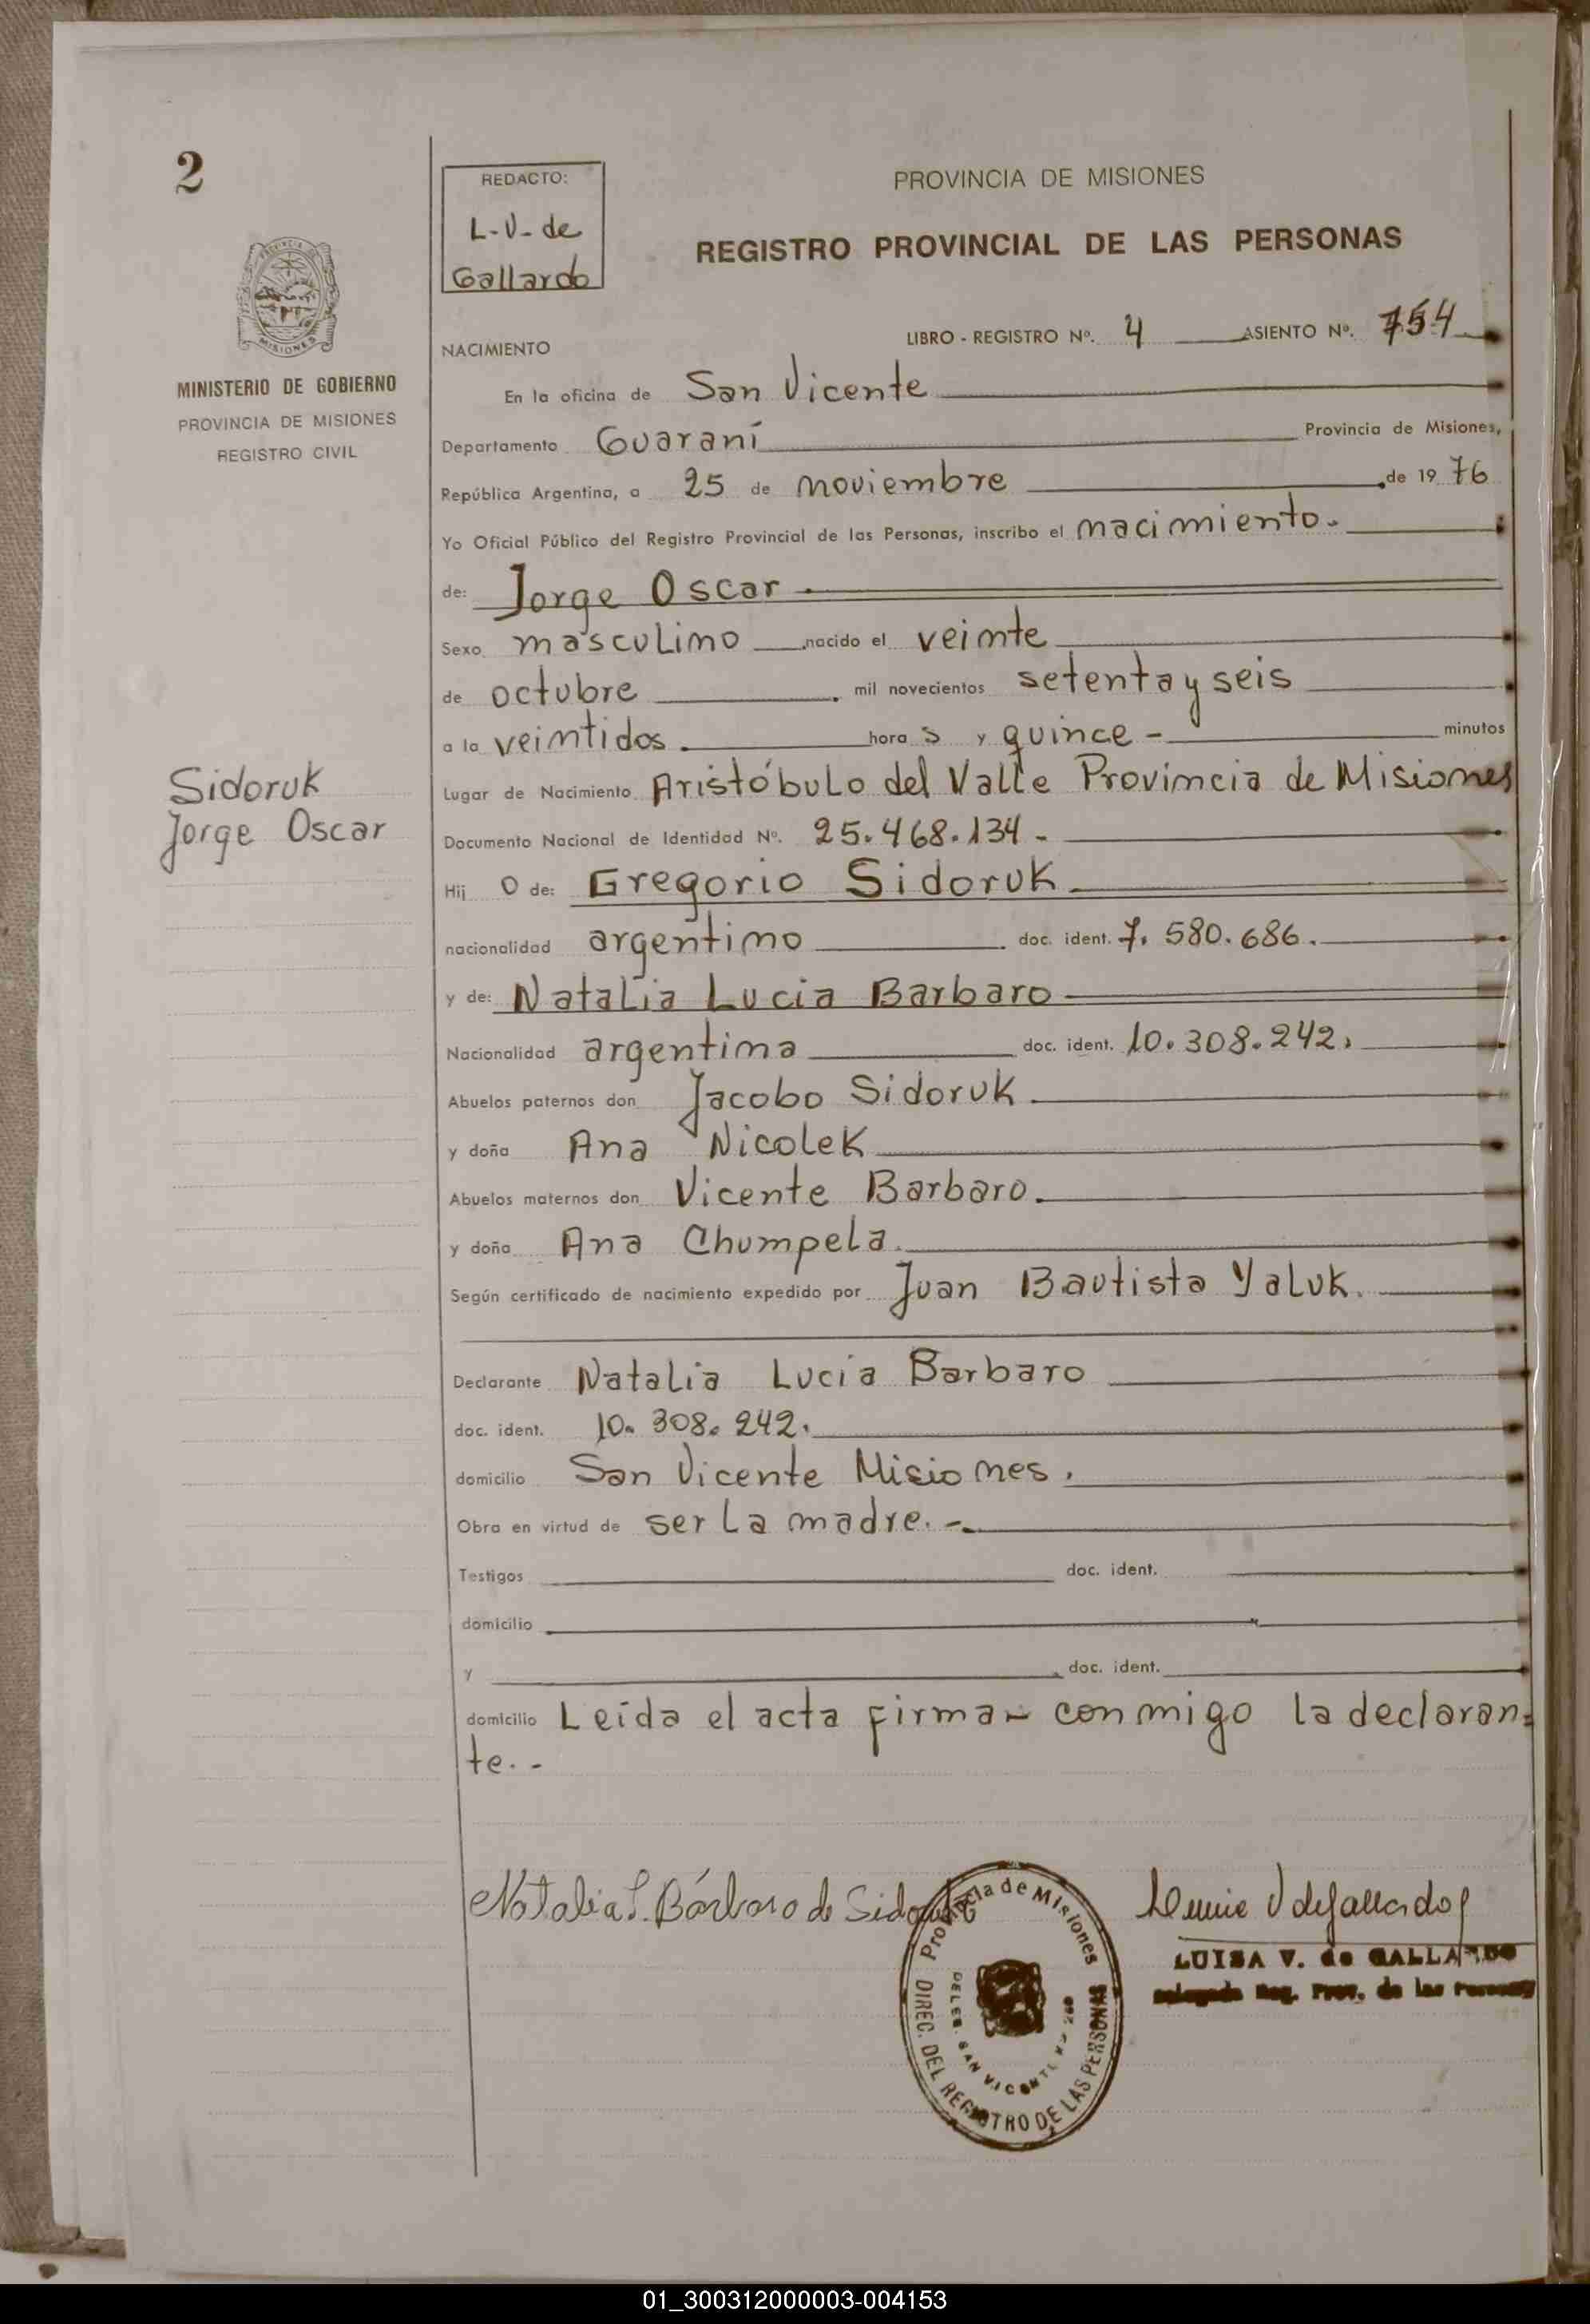 2
REDACTO:
L-V- de
Gallardo
PROVINCIA DE MISIONES
REGISTRO PROVINCIAL DE LAS PERSONAS
PROVINCIA
MISIONES
MINISTERIO DE GOBIERNO
PROVINCIA DE MISIONES
REGISTRO CIVIL
NACIMIENTO
LIBRO - REGISTRO Nº. 4 ASIENTO Nº. 754
En la oficina de San Vicente
Departamento Guaraní Provincia de Misiones,
República Argentina, a 25 de noviembre de 1976
Yo Oficial Público del Registro Provincial de las Personas, inscribo el nacimiento.
de: Jorge Oscar
Sexo masculino nacido el veinte
de octubre mil novecientos setenta y seis
a la veintidos. hora s y quince - minutos
Sidoruk
Jorge Oscar
Lugar de Nacimiento Aristóbulo del Valle Provincia de Misiones
Documento Nacional de Identidad Nº. 25.468.134 -
Hij o de: Gregorio Sidoruk
nacionalidad argentino doc. ident. 7.580.686.
y de: Natalia Lucia Barbaro
Nacionalidad argentina doc. ident. 10.308.242.
Abuelos paternos don Jacobo Sidoruk
y doña Ana Nicolek
Abuelos maternos don Vicente Barbaro.
y doña Ana Chumpela.
Según certificado de nacimiento expedido por Juan Bautista Yaluk.
Declarante Natalia Lucia Barbaro
doc. ident. 10.308.242.
domicilio San Vicente Misiones.
Obra en virtud de ser la madre. -.
Testigos doc. ident.
domicilio
y doc. ident.
domicilio Leida el acta firman conmigo la declaran=
te. -
Natalia L. Bárbaro de Sidoruk
Provincia de Misiones
DIREC. DEL REGISTRO DE LAS PERSONAS
DELEG. SAN VICENTE
LUISA V. de GALLARDO
Delegada Reg. Prov. de las Personas
01_300312000003-004153